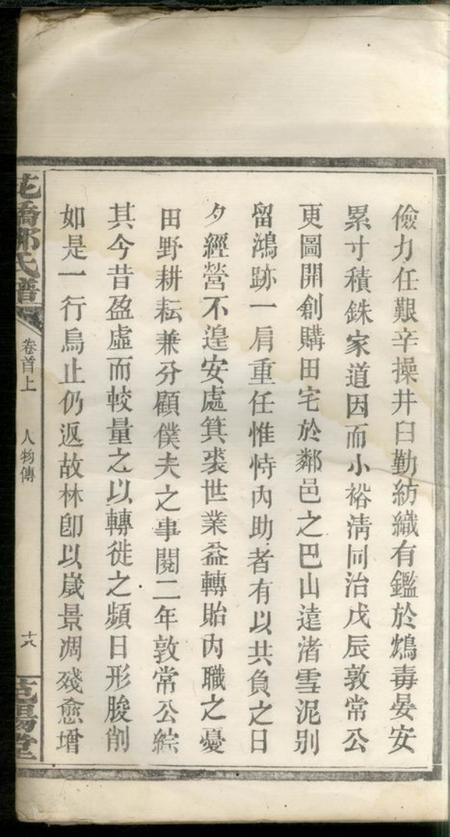 儉力任艱辛操井臼勤紡織有鑑於鴆毒晏安
累寸積銖家道因而小裕淸同治戊辰敦常公
更圖開創購田宅於鄰邑之巴山達渚雪泥別
留鴻跡一肩重任惟恃內助者有以共負之日
夕經營不遑安處箕裘世業益轉貽內職之憂
田野耕耘兼分顧僕夫之事閱二年敦常公綜
其今昔盈虛而較量之以轉徙之頻日形朘削
如是一行烏止仍返故林卽以歲景凋殘愈增
花橋鄭氏譜
卷首上
人物傳
十八